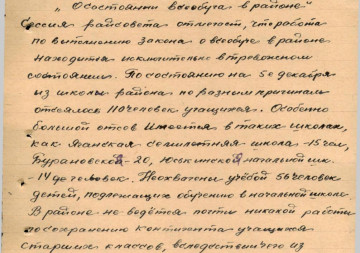 „О состоянии всеобуча в районе"
Сессия райсовета отмечает, что работа
по выполнению закона о всеобуче в районе
находится исключительно в тревожном
состоянии. По состоянию на 5е декабря
из школы района по разным причинам
отсеялся 110 человек учащихся. Особенно
большой отсев имеется в таких школах,
как Яганская семилетняя школа - 15 чел,
Бурановской - 20, Юськинской начальной шк.
- 14 детей человек. Неохвачены учёбой 56 человек
детей, подлежащих обучению в начальной школе
В районе не ведётся почти никакой работы
по сохранению контингента учащихся
старших классов, вследствии чего из